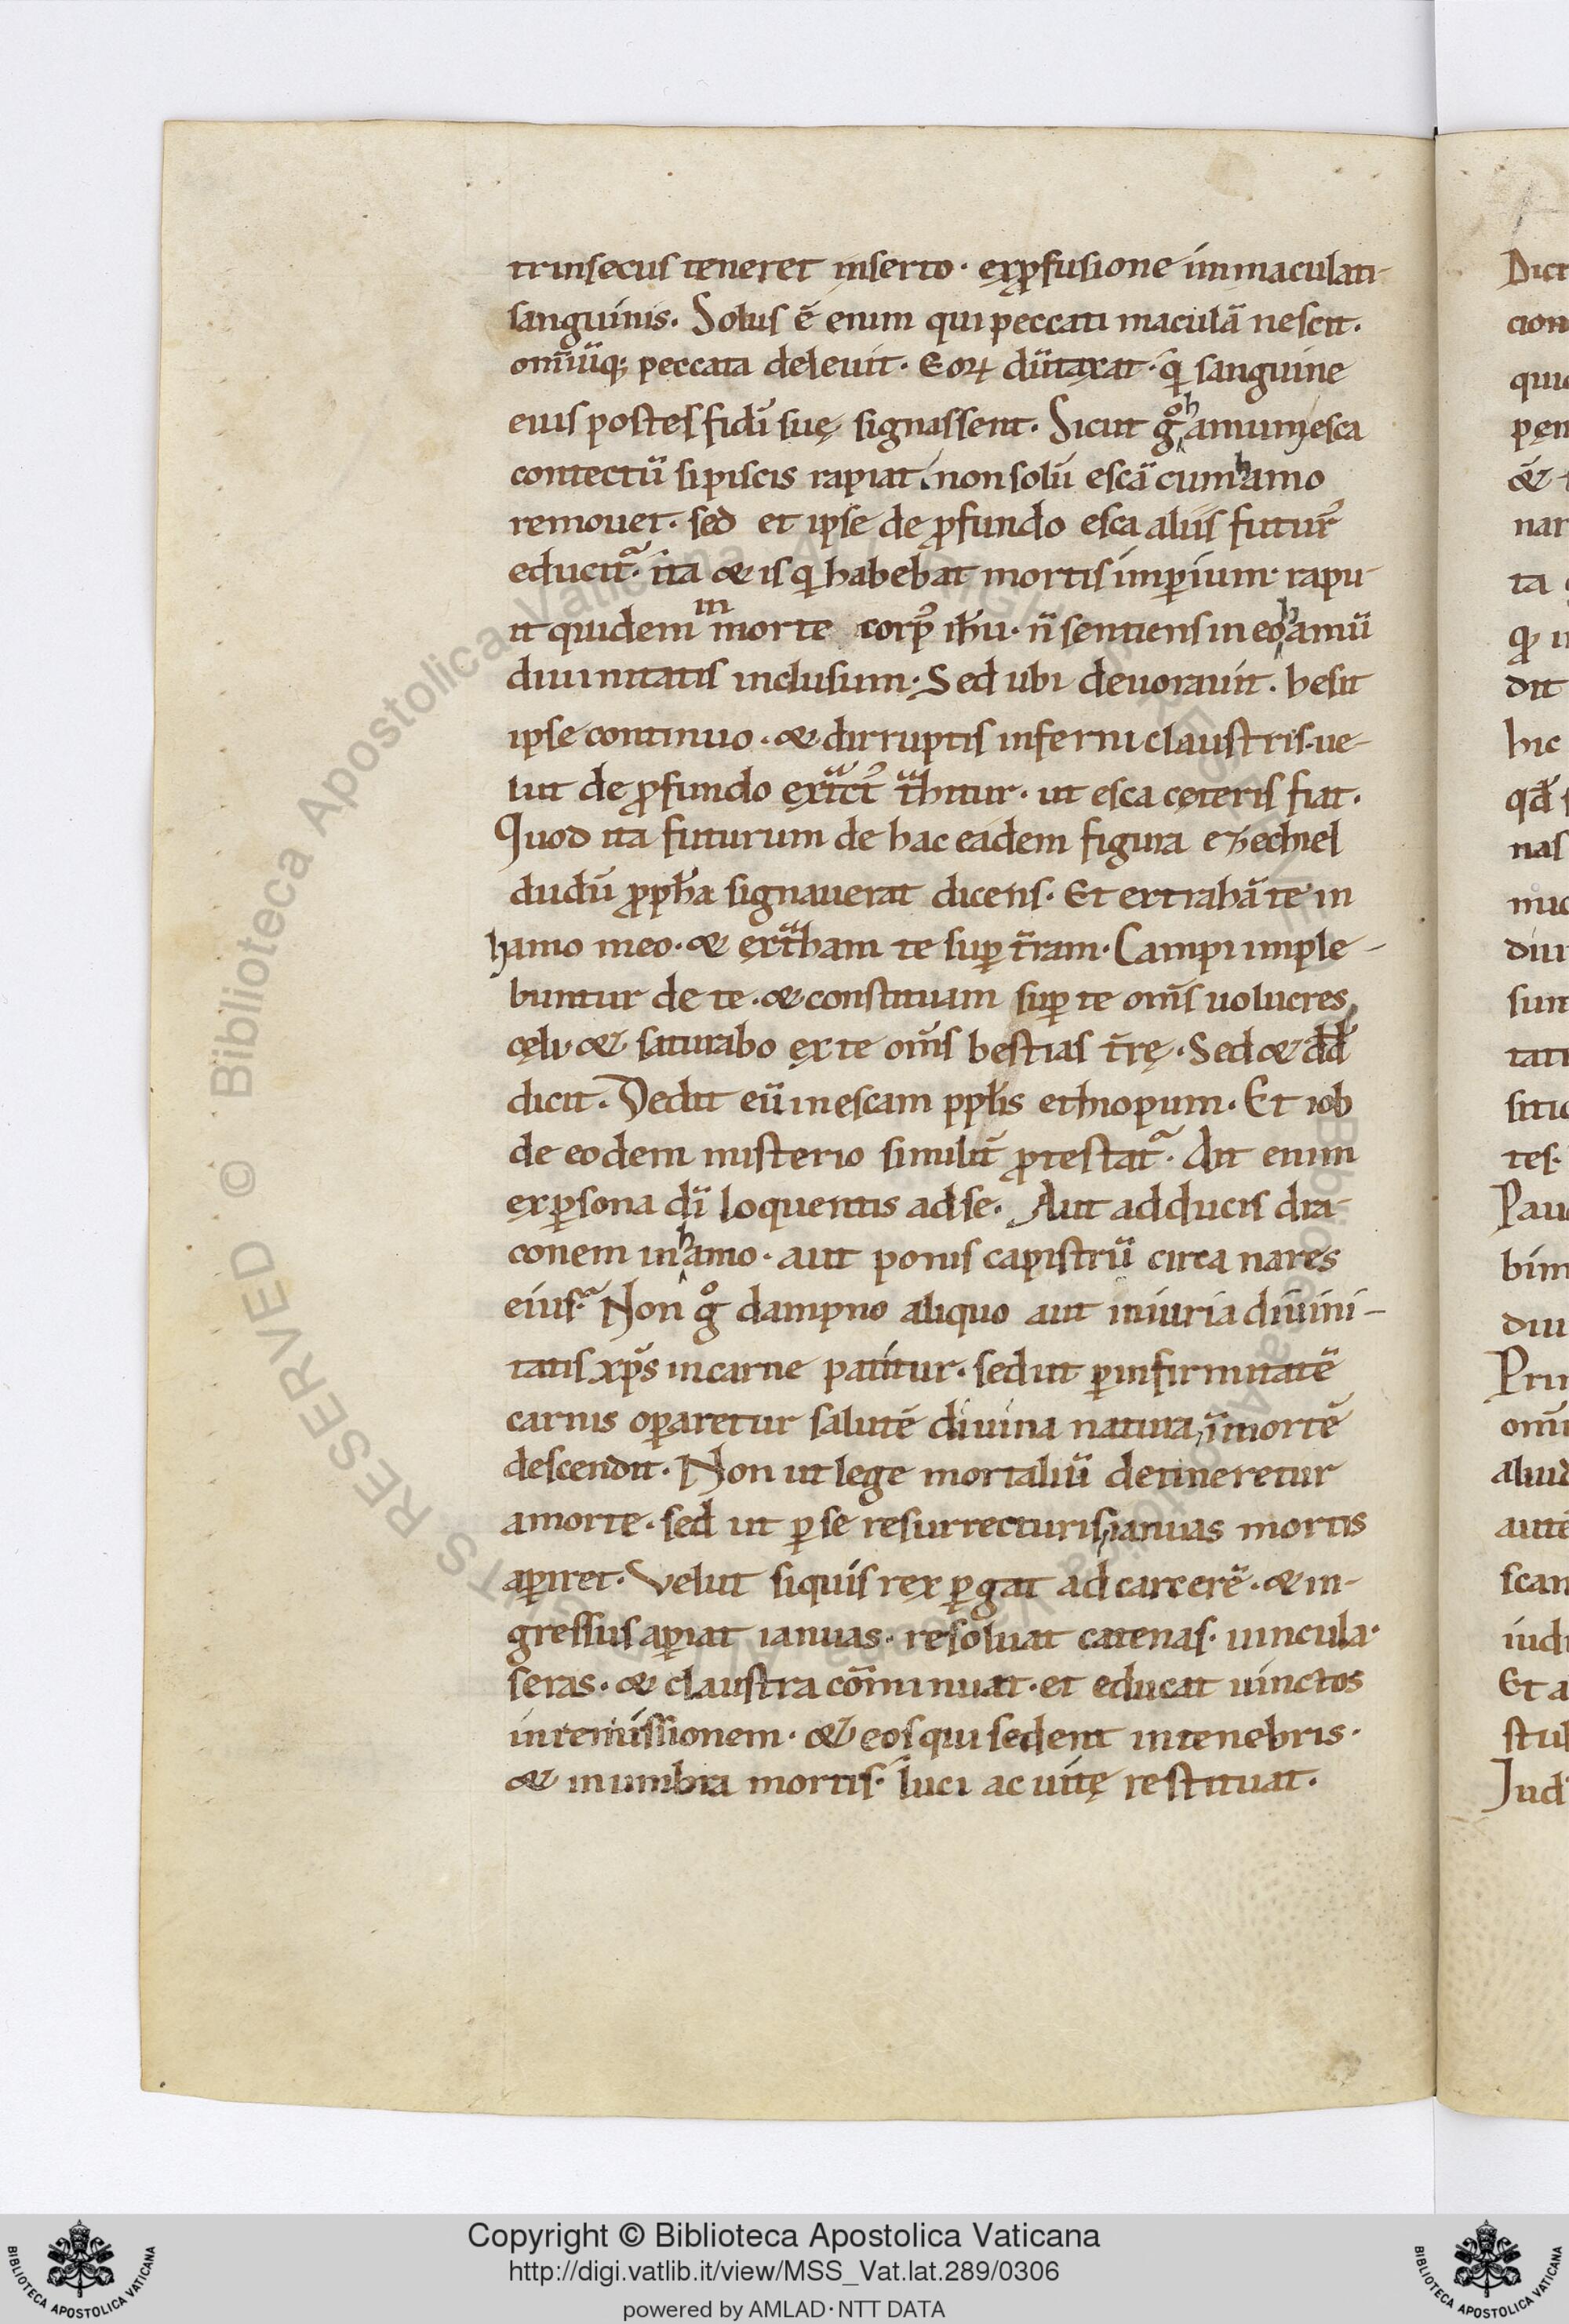 trinsecus teneret inserto· ex ꝓfusione immaculati-
sanguinis. Solus ē enim qui peccati maculā nescit.
omīūq; peccata deleuit· Eoꝝ dūtaxat· q̇ sanguine
eius postes fidī suę signassent. Sicut gͦ hamum esca
contectū si piscis rapiat non solū escā cum hamo
remouet· sed et ipse de ꝓfundo esca aliis futurꝰ
educit᷑· ita & is q̇ habebat mortis imꝑium· rapu-
it quidem in morte corpꝰ ih̄u· n̄ sentiens in eo hamū
diuinitatis inclusum· Sed ubi deuorauit· hesit
ipse continuo· & dirruptis inferni claustris· ue-
lut de ꝓfundo extͣctꝰ tͣhitur· ut esca ceteris fiat.
Quod ita futurum de hac eadem figura ezechiel
dudū ꝓph̄a signauerat dicens· Et extrahā te in
hamo meo· & extͣham te suꝑ t̄ram· Campi imple-
buntur de te· & constituam suꝑ te om̄s uolucres
cęli· & saturabo ex te om̄s bestias t̄rę· Sed & dd̄
dicit. Dedit eū in escam ppl̄is ethiopum· Et iob
de eodem misterio similit̄ ꝓtestat᷑· Ait enim
ex ꝑsona dī loquentis ad se· Aut adducis dra-
conem in hamo· aut ponis capistrū circa nares
eius· Non gͦ dampno aliquo aut iniuria diuini-
tatis xp̄s in carne patitur· sed ut ꝑ infirmitatē
carnis oꝑaretur salutē diuina natura, ī mortē
descendit· Non ut lege mortaliū detineretur
a morte· sed ut ꝑ se resurrecturis ianuas mortis
aꝑiret· Velut siquis rex ꝑgat ad carcerē· & in-
gressus aꝑiat ianuas· resoluat catenas· uincula·
seras· & claustra cōminuat· et educat uinctos
in remissionem· & eos qui sedent in tenebris·
& in umbra mortis· luci ac uitę restituat.
Dict
cion
quid
pen
&
nar
ta
ꝓ i
dit
hic
qđ
nas
muc
diui
sun
tati
sitio
tes·
Pau
bim
diu
Pri
om̄
aliud
autē
scan
iudi
Et a
stul
Iud
Biblioteca Apostolica Vaticana
RESERVED ©
Copyright © Biblioteca Apostolica Vaticana
http://digi.vatlib.it/view/MSS_Vat.lat.289/0306
powered by AMLAD·NTT DATA
BIBLIOTECA APOSTOLICA VATICANA
BIBLIOTECA APOSTOLICA VATICANA